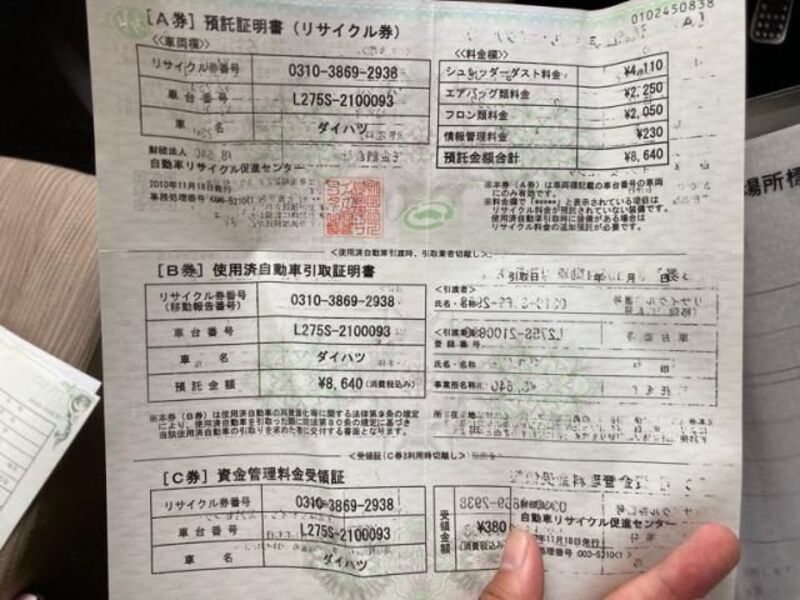 0102450838
A
[A券] 預託証明書 (リサイクル券)
<<車両欄>>
リサイクル券番号 0310-3869-2938
車台番号 L275S-2100093
車名 ダイハツ
財団法人
自動車リサイクル促進センター
2010年11月18日発行
<<料金欄>>
シュレッダーダスト料金 ¥4,110
エアバッグ類料金 ¥2,250
フロン類料金 ¥2,050
情報管理料金 ¥230
預託金額合計 ¥8,640
※本券（A券）は車両欄記載の車台番号の車両
にのみ有効です。
※料金欄で「*****」と表示されている項目は
リサイクル料金が預託されていない装備です。
使用済自動車引取時に装備がある場合は
リサイクル料金の追加預託が必要です。
<使用済自動車引渡時、引取業者切離し>
[B券] 使用済自動車引取証明書
リサイクル券番号
(移動報告番号) 0310-3869-2938
車台番号 L275S-2100093
車名 ダイハツ
預託金額 ¥8,640 (消費税込み)
引取日 年 月 日
<引渡者>
氏名・名称
登録番号
氏名・名称 印
事業所名称
所在地
※本券（B券）は使用済自動車の再資源化等に関する法律第9条の規定
により、使用済自動車を引取った際に同法第80条の規定に基づき
当該使用済自動車の引取りを求めた者に交付する書面となります。
<受領証(C券)利用時切離し>
[C券] 資金管理料金受領証
リサイクル券番号 0310-3869-2938
車台番号 L275S-2100093
車名 ダイハツ
受領金額 ¥380
(消費税込み)
自動車リサイクル促進センター
年11月18日発行
処理番号:003-5210(1)